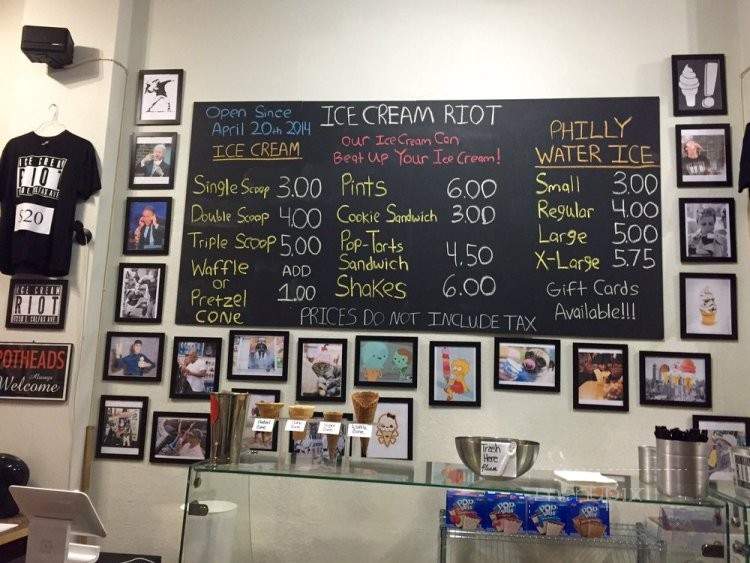 Open Since
April 20th 2014
ICE CREAM RIOT
our Ice Cream Can
Beat Up Your Ice Cream!
ICE CREAM
Single Scoop 3.00
Double Scoop 4.00
Triple Scoop 5.00
Waffle
or
Pretzel
CONE
ADD
1.00
Pints 6.00
Cookie Sandwich 3.00
Pop-Tarts
Sandwich 4.50
Shakes 6.00
PHILLY
WATER ICE
Small 3.00
Regular 4.00
Large 5.00
X-Large 5.75
Gift Cards
Available!!!
PRICES DO NOT INCLUDE TAX
ICE CREAM
RIOT
$20
ICE CREAM
RIOT
POTHEADS
Always
Welcome
Trash
Here
Please